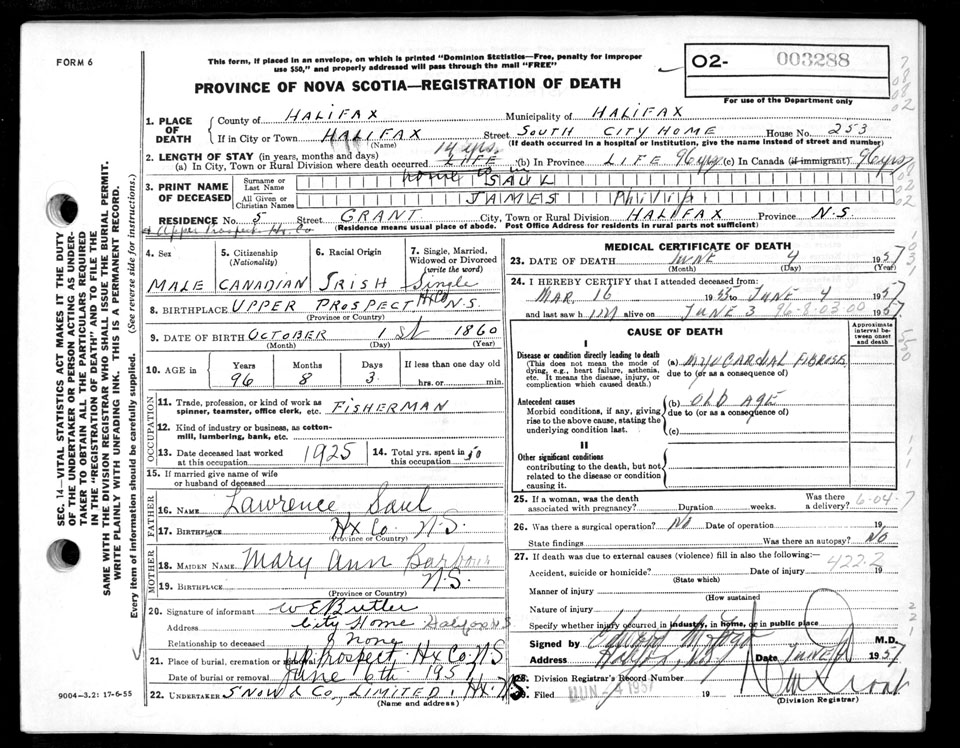 FORM 6
This form, if placed in an envelope, on which is printed "Dominion Statistics—Free, penalty for improper
use $50," and properly addressed will pass through the mail "FREE"
PROVINCE OF NOVA SCOTIA—REGISTRATION OF DEATH
02- 003288
For use of the Department only
1. PLACE OF DEATH
County of HALIFAX Municipality of HALIFAX
If in City or Town HALIFAX Street SOUTH CITY HOME House No. 253
(Name) (If death occurred in a hospital or institution, give the name instead of street and number)
2. LENGTH OF STAY (in years, months and days) 14 yrs.
(a) In City, Town or Rural Division where death occurred LIFE (b) In Province LIFE 96 yrs (c) In Canada (if immigrant) 96 yrs
3. PRINT NAME OF DECEASED
Surname or Last Name SAUL
All Given or Christian Names JAMES Philip
RESIDENCE No. 5 Street GRANT City, Town or Rural Division HALIFAX Province N.S.
Upper Prospect Hx Co (Residence means usual place of abode. Post Office Address for residents in rural parts not sufficient)
4. Sex MALE
5. Citizenship (Nationality) CANADIAN
6. Racial Origin IRISH
7. Single, Married, Widowed or Divorced (write the word) Single
8. BIRTHPLACE UPPER PROSPECT Hx Co N.S.
(Province or Country)
9. DATE OF BIRTH OCTOBER 1st 1860
(Month) (Day) (Year)
10. AGE in Years 96 Months 8 Days 3 If less than one day old hrs. or min.
OCCUPATION
11. Trade, profession, or kind of work as spinner, teamster, office clerk, etc. FISHERMAN
12. Kind of industry or business, as cotton-mill, lumbering, bank, etc.
13. Date deceased last worked at this occupation 1925
14. Total yrs. spent in this occupation 50
15. If married give name of wife or husband of deceased
FATHER
16. NAME Lawrence Saul
17. BIRTHPLACE Hx Co. N.S.
(Province or Country)
MOTHER
18. MAIDEN NAME Mary Ann
19. BIRTHPLACE N.S.
(Province or Country)
20. Signature of informant W E Butler
Address City Home Halifax N S
Relationship to deceased None
21. Place of burial, cremation or removal Up Prospect Hx Co. NS
Date of burial or removal June 6th 1957
22. UNDERTAKER SNOW & CO, LIMITED. Hx. NS
(Name and address)
MEDICAL CERTIFICATE OF DEATH
23. DATE OF DEATH JUNE 4 1957
(Month) (Day) (Year)
24. I HEREBY CERTIFY that I attended deceased from:
MAR 16 1955 to JUNE 4 1957
and last saw him alive on JUNE 3 1957
96-8-03 00
CAUSE OF DEATH
Approximate interval between onset and death
I
Disease or condition directly leading to death
(This does not mean the mode of dying, e.g., heart failure, asthenia, etc. It means the disease, injury, or complication which caused death.)
(a) MYOCARDIAL FIBROSIS
due to (or as a consequence of)
Antecedent causes
Morbid conditions, if any, giving rise to the above cause, stating the underlying condition last.
(b) OLD AGE
due to (or as a consequence of)
(c)
II
Other significant conditions
contributing to the death, but not related to the disease or condition causing it.
25. If a woman, was the death associated with pregnancy? Duration weeks. Was there a delivery?
6-04-7
26. Was there a surgical operation? No Date of operation 19
State findings Was there an autopsy? No
27. If death was due to external causes (violence) fill in also the following:—
422.2
Accident, suicide or homicide? Date of injury 19
(State which)
Manner of injury
(How sustained
Nature of injury
Specify whether injury occurred in industry, in home, or in public place
Signed by M.D.
Address Date JUNE 1957
28. Division Registrar's Record Number
29. Filed JUN -4 1957 19
(Division Registrar)
9004-3.2: 17-6-55
SEC. 14—VITAL STATISTICS ACT MAKES IT THE DUTY
OF THE UNDERTAKER OR PERSON ACTING AS UNDER-
TAKER TO OBTAIN ALL THE PARTICULARS REQUIRED
IN THE "REGISTRATION OF DEATH" AND TO FILE THE
SAME WITH THE DIVISION REGISTRAR WHO SHALL ISSUE THE BURIAL PERMIT.
WRITE PLAINLY WITH UNFADING INK. THIS IS A PERMANENT RECORD.
Every item of information should be carefully supplied. (See reverse side for instructions.)